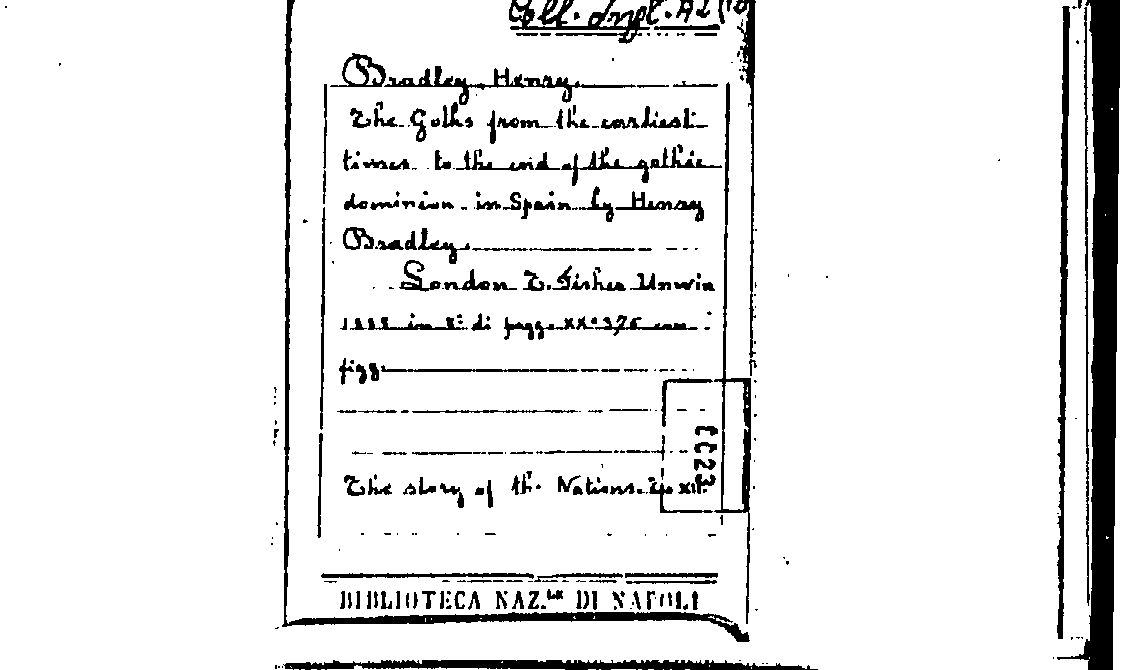 Coll. Ingl. A2 (10
Bradley, Henry.
The Goths from the earliest
times to the end of the gothic
dominion in Spain by Henry
Bradley.
London T. Fisher Unwin
1888 in 8° di pagg. XX-376 con
figg.
The story of the Nations. XII.
CC23
BIBLIOTECA NAZ.LE DI NAPOLI